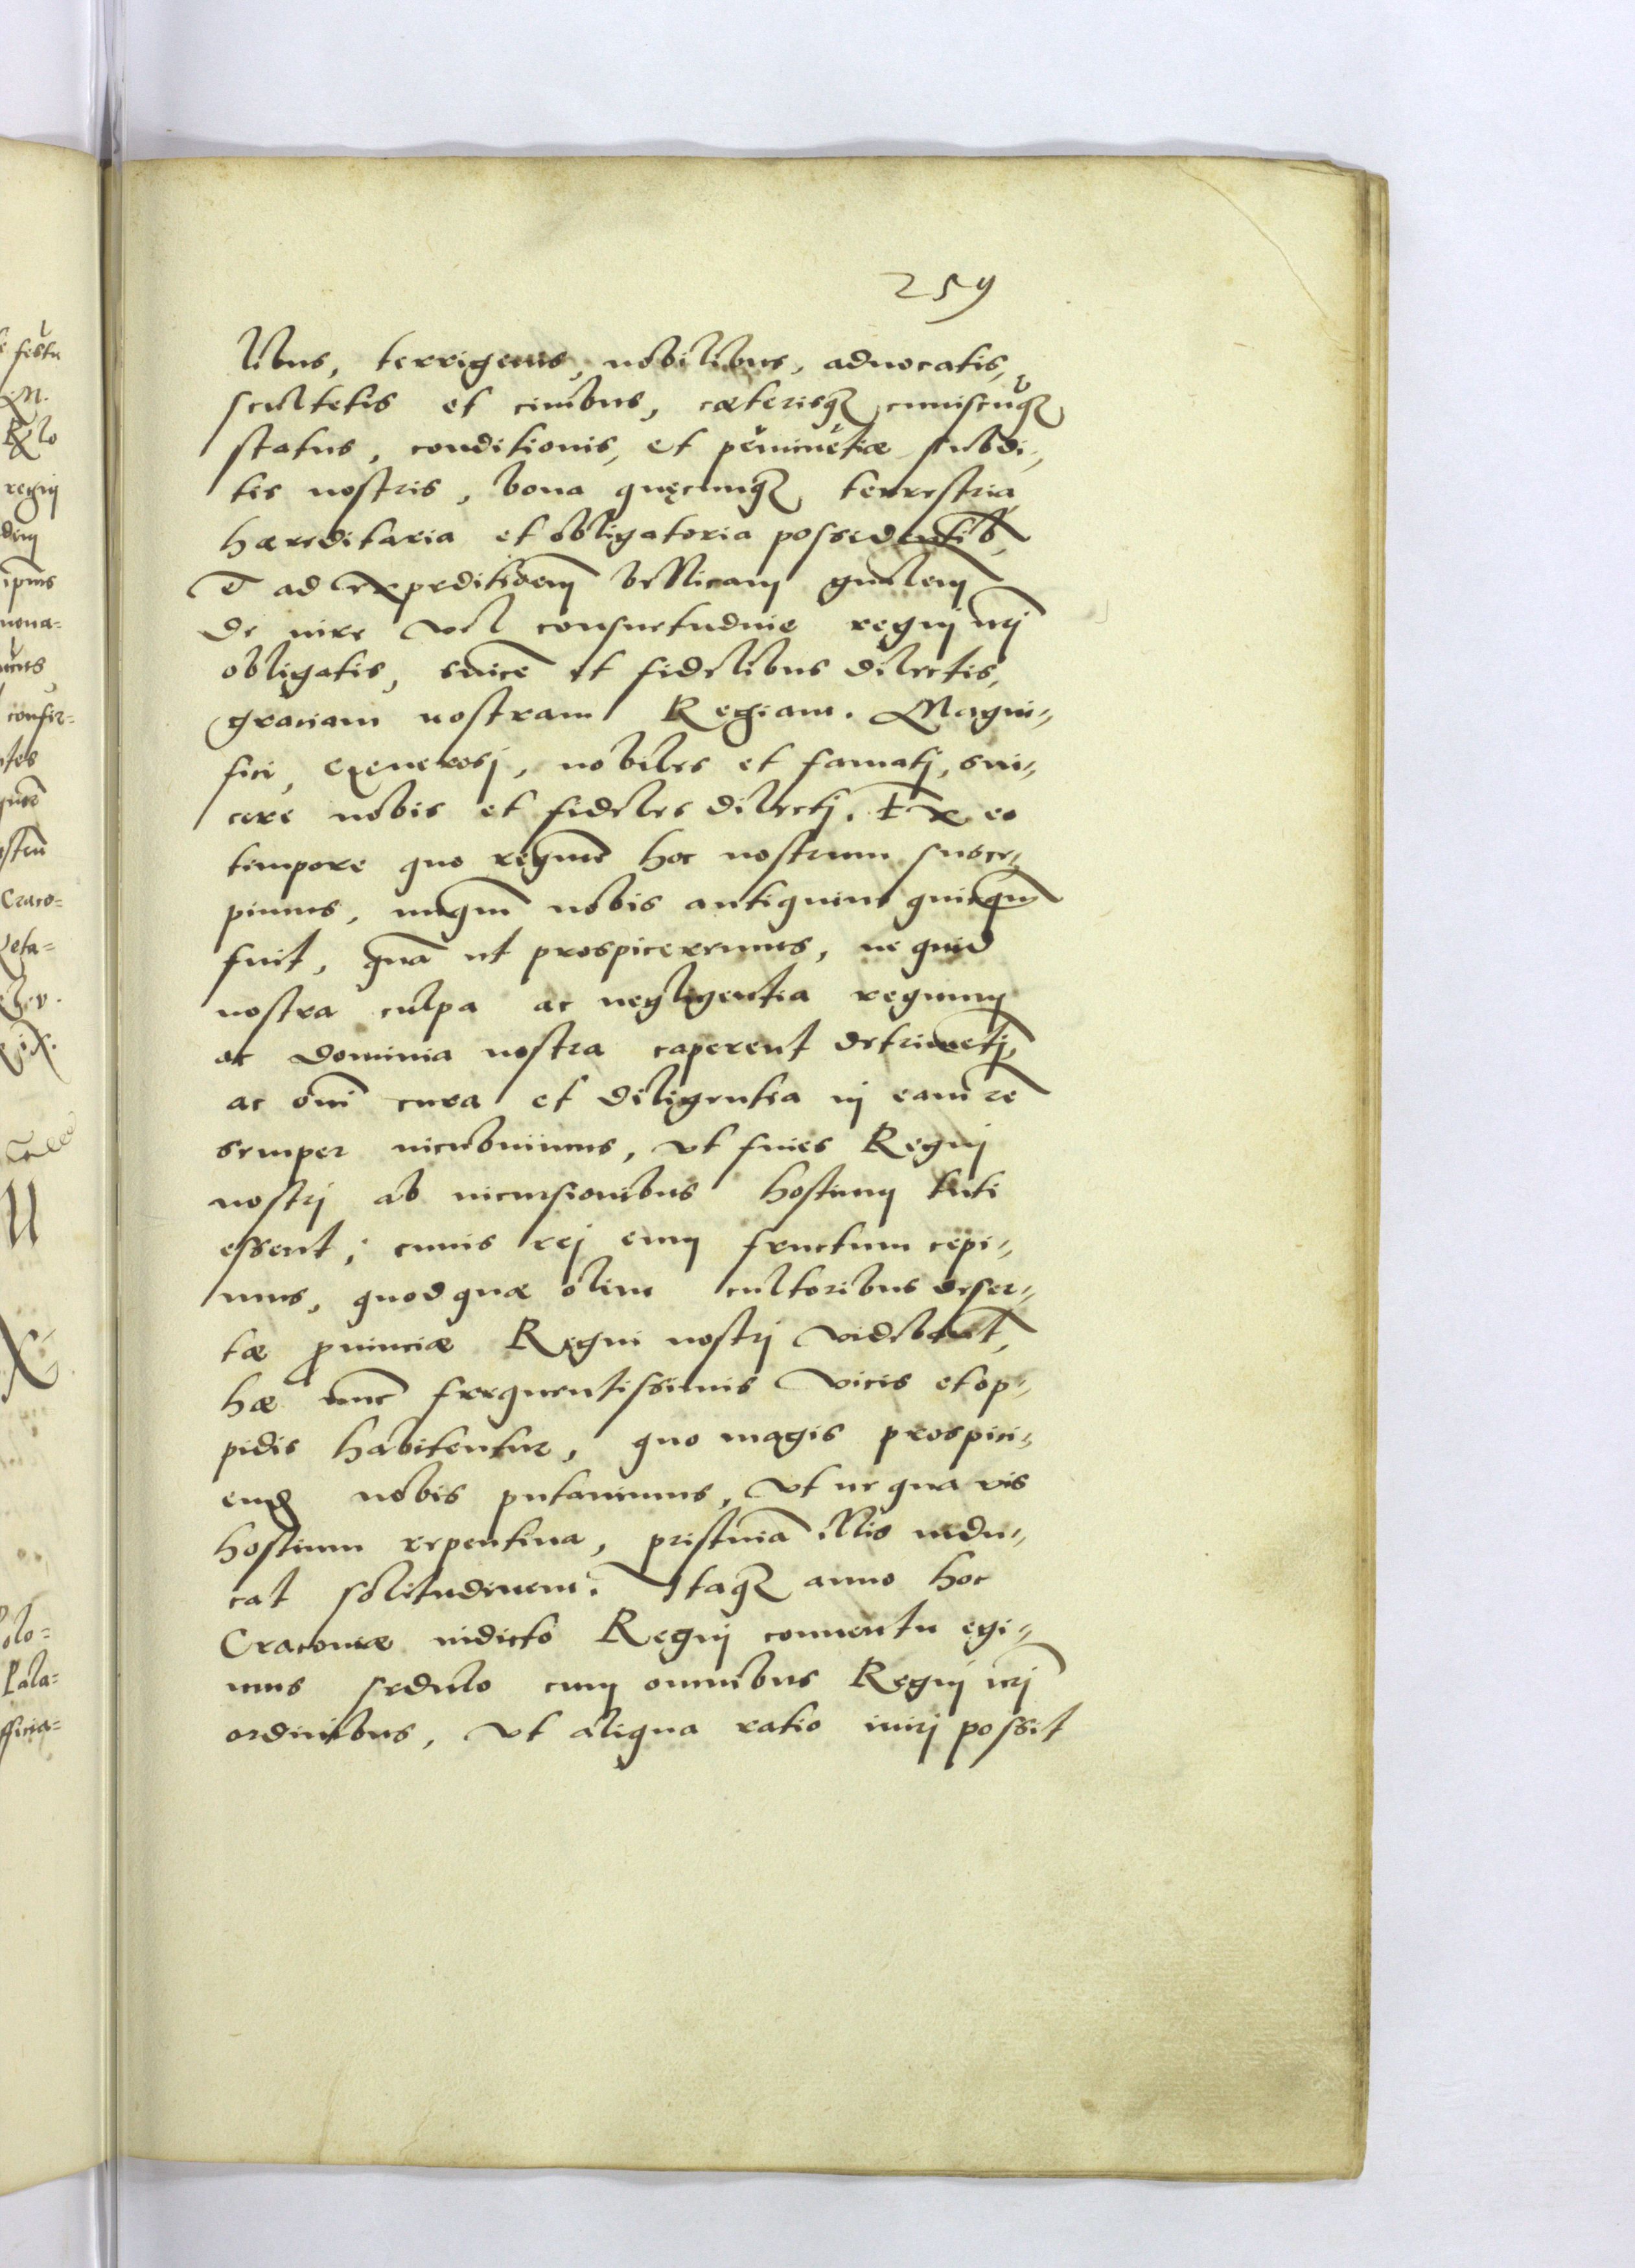 259
libus, terrigenis, nobilibus, aduocatis,
scultetis et ciuibus, cæterisqꝫ cuiuscūqꝫ
status, conditionis, et p̄eminētiæ subdi„
tis nostris, bona quęcunqꝫ terrestria,
hæreditaria et obligatoria possidentib
et ad expeditionem bellicam gnãlem
de iure vel consuetudine regnj nrj̃
obligatis, sincẽ et fidelibus dilectis,
graciam nostram Regiam. Magni„
fici, Generosj, nobiles et famatj, sin„
cere nobis et fideles dilectj. Ex eo
tempore quo regnũ hoc nostrum susce„
pimus, nuqm̃ nobis antiquius quicqm̃
fuit, quã ut prospiceremus, ne quid
nostra culpa ac negligentia regnum
ac dominia nostra caperent detrimẽtj,
ac om̃i cura et diligentia in eam rẽ
semper incubuimus, vt fines Regnj
nostrj ab incursionibus hostium tuti
essent; cuius rej eum fructum cepi„
mus, quod quæ olim cultoribus deser„
tæ ꝓuinciæ Regni nostrj videbant̃,
hæ nũc frequentissimis vicis et op„
pidis habitentur, quo magis prospici„
end nobis putauimus, vt ne qua vis
hostium repentina, pristinã illis indu„
cat solitudinem. Itaqꝫ anno hoc
Cracouiæ indicto Regnj conuentu egi„
mus sedulo cum omnibus Regnj nrj̃
ordinibus, vt aliqua ratio inirj possit